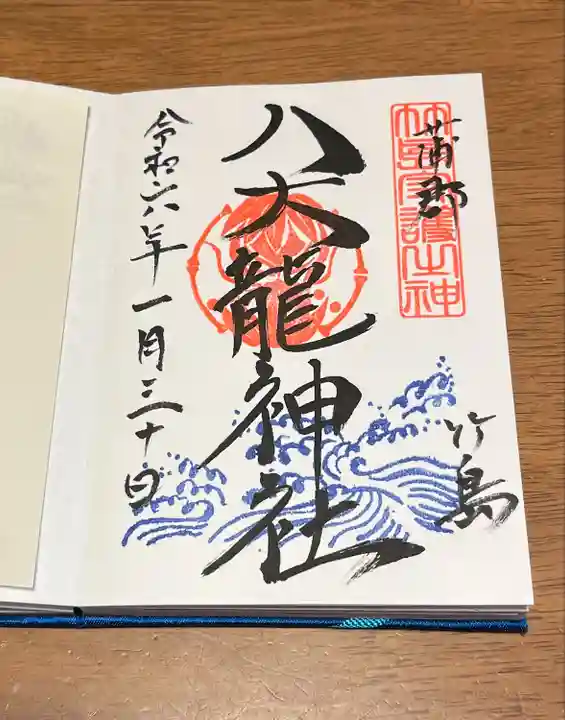 蒲郡
竹島
八大龍神社
令和六年一月三十日
竹島守護之神